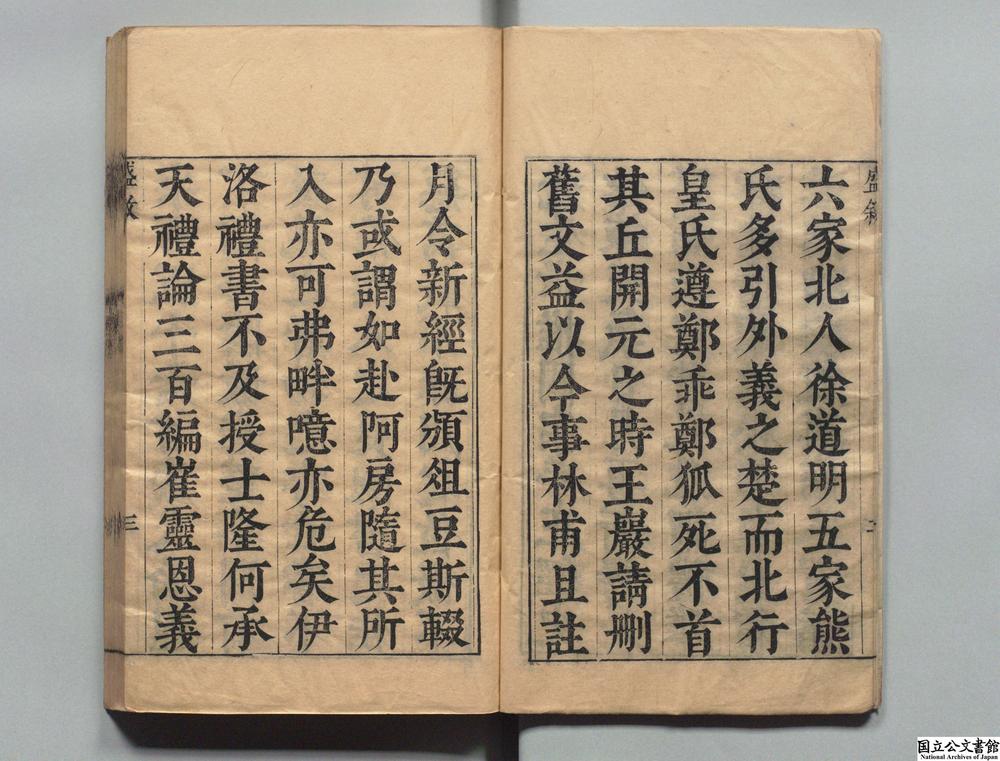 六家北人徐道明五家熊
氏多引外義之楚而北行
皇氏遵鄭乖鄭狐死不首
其丘開元之時王巖請刪
舊文益以今事林甫且註
月令新經旣頒俎豆斯輟
乃或謂如赴阿房隨其所
入亦可弗畔噫亦危矣伊
洛禮書不及授士隆何承
天禮論三百編崔靈恩義
盛敘
三
国立公文書館
National Archives of Japan